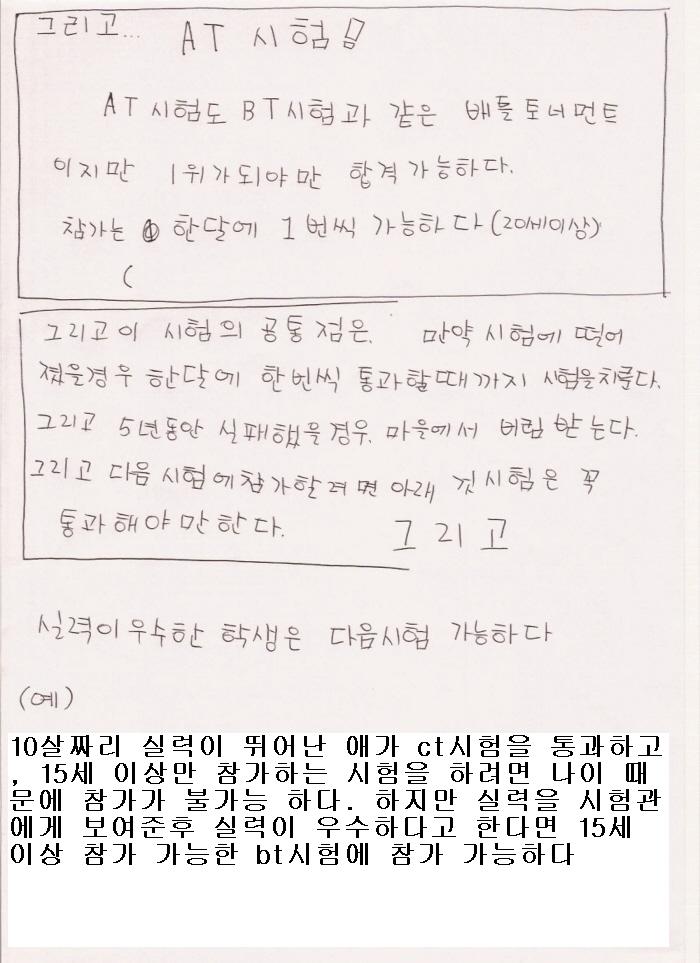 그리고... AT 시험
AT시험도 BT시험과 같은 배틀토너먼트
이지만 1위가되야만 합격가능하다.
참가는 한달에 1번씩 가능하다(20세이상)
(
그리고이 시험의 공통점은. 만약시험에 떨어
졌을경우 한달에 한번씩 통과할때까지 시험을치룬다.
그리고 5년동안 실패했을경우. 마을에서 버림받는다.
그리고 다음시험에참가할려면 아래 것시험은 꼭
통과해야만한다. 그리고
실력이우수한 학생은 다음시험 가능하다
(예)
10살짜리 실력이 뛰어난 애가 ct시험을 통과하고
, 15세 이상만 참가하는 시험을 하려면 나이 때
문에 참가가 불가능 하다. 하지만 실력을 시험관
에게 보여준후 실력이 우수하다고 한다면 15세
이상 참가 가능한 bt시험에 참가 가능하다